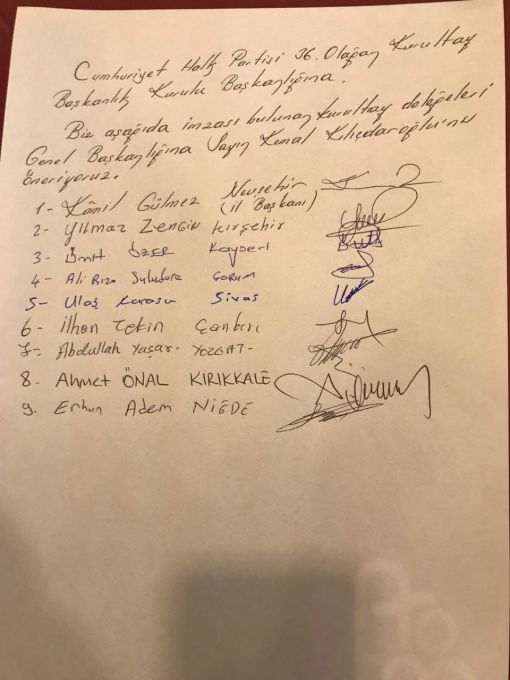 Cumhuriyet Halk Partisi 36. Olağan Kurultay
Başkanlık Kurulu Başkanlığına.
Biz aşağıda imzası bulunan kurultay delegeleri
Genel Başkanlığına Sayın Kemal Kılıçdaroglu'nu
öneriyoruz.
1- Kâmil Gülmez Nevşehir (il Başkanı)
2- YIlmaz ZENGiN Kırşehir
3- Ümit ÖZER Kayseri
4- Ali Rıza Suludere ÇORUM
5- Ulaş Karasu Sivas
6- ilhan Tekin Çankırı
7- Abdullah Yaşar- YOZGAT-
8. Ahmet ÖNAL KIRIKKALE
9. Erhan Adem NİĞDE